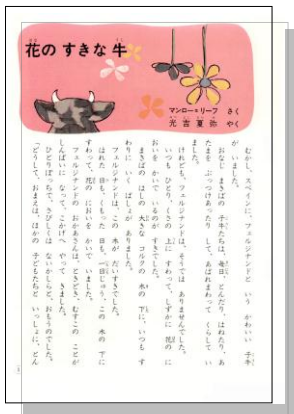 花の すきな 牛
マンロー＝リーフ さく
光吉夏弥 やく
むかし、スペインに、フェルジナンドと いう かわいい 子牛
が いました。
おなじ まきばの 子牛たちは、毎日、とんだり、はねたり、あ
たまを ぶっつけあったり して、あばれまわって くらして い
ました。
けれども、フェルジナンドは、そうでは ありませんでした。
いつも ひとり、くさの 上に すわって、しずかに 花の に
おいを かいで いるのが すきでした。
まきばの はしの 大きな コルクの 木の 下に、いつも す
わりに いく ばしょが ありました。
フェルジナンドは、この 木が だいすきでした。
はれた 日も、くもった 日も、一日じゅう、この 木の 下に
すわって、花の においを かいで いました。
フェルジナンドの おかあさんは、ときどき、むすこの ことが
しんぱいに なって、こかげへ やって きました。
ひとりぼっちで、さびしくは ないかしらと、おもうのでした。
「どうして、おまえは、ほかの 子どもたちと いっしょに、とん